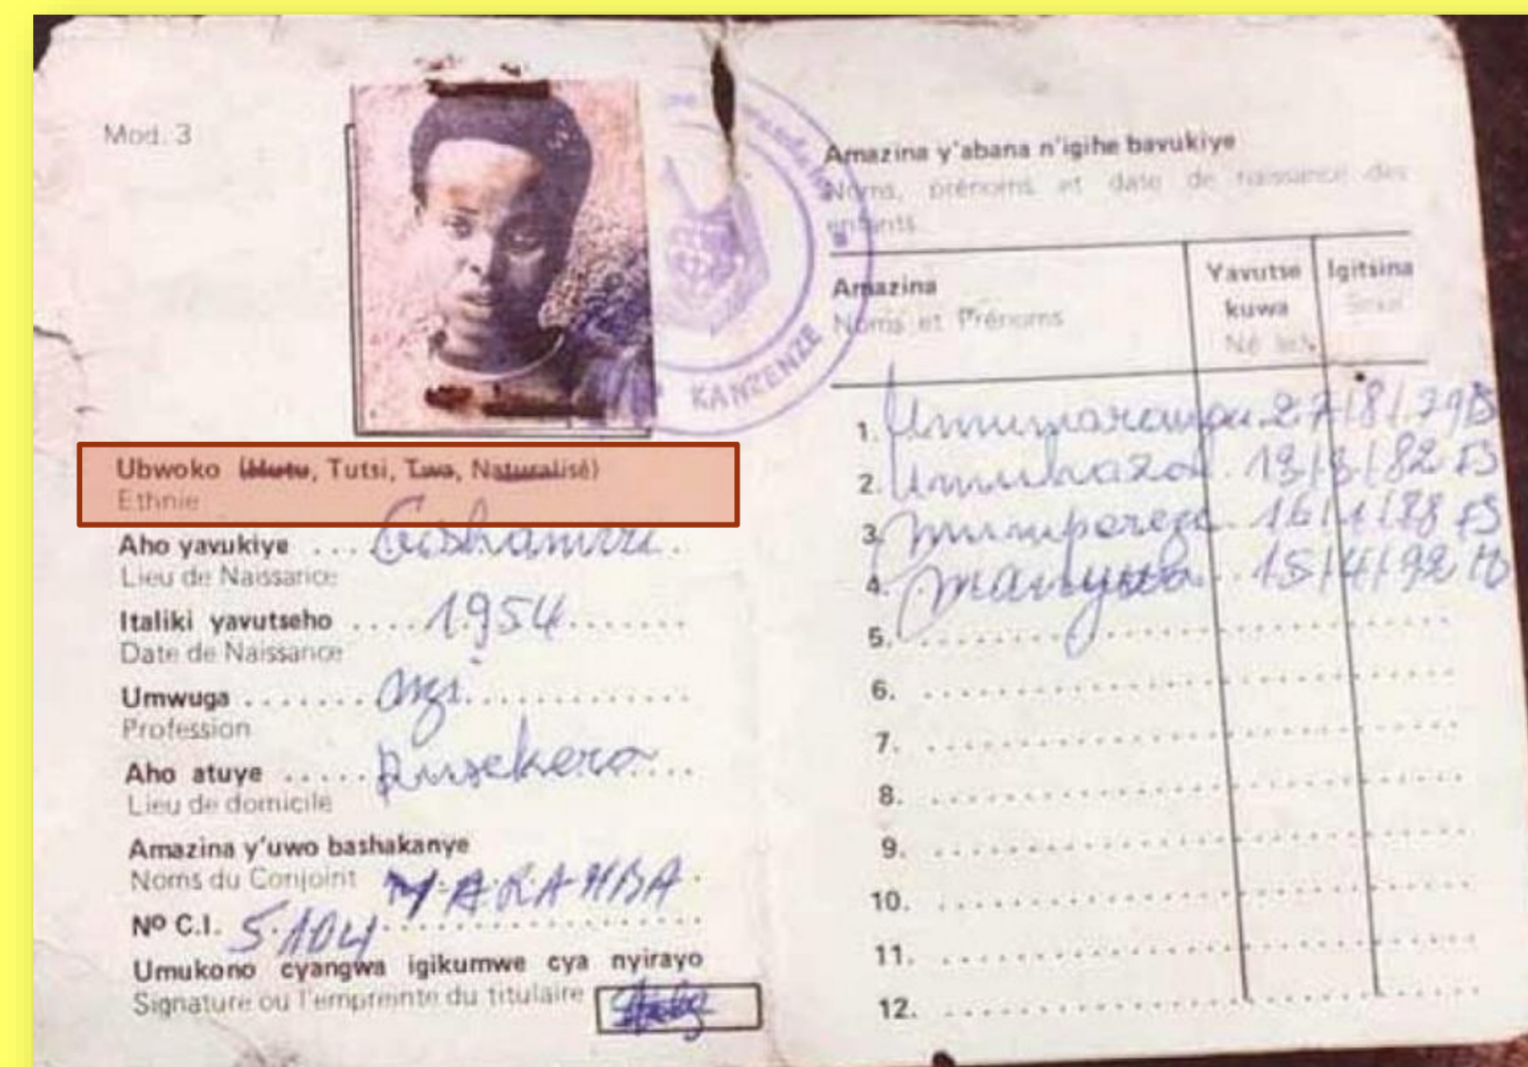 Mod. 3
KANZENZE
Ubwoko (Hutu, Tutsi, Twa, Naturalisé)
Ethnie
Aho yavukiye ....
Lieu de Naissance
Italiki yavutseho .... 1954 .......
Date de Naissance
Umwuga .......
Profession
Aho atuye ..... Rusekera ....
Lieu de domicile
Amazina y'uwo bashakanye
Noms du Conjoint
Nº C.I. 5.104
Umukono cyangwa igikumwe cya nyirayo
Signature ou l'empreinte du titulaire
Amazina y'abana n'igihe bavukiye
Noms, prénoms et date de naissance des
enfants
Amazina
Noms et Prénoms
Yavutse
kuwa
Né le
Igitsina
Sexe
1. 27/8/79
2. 13/3/82
3. 16/1/88
4. 15/4/92
5.
6.
7.
8.
9.
10.
11.
12.